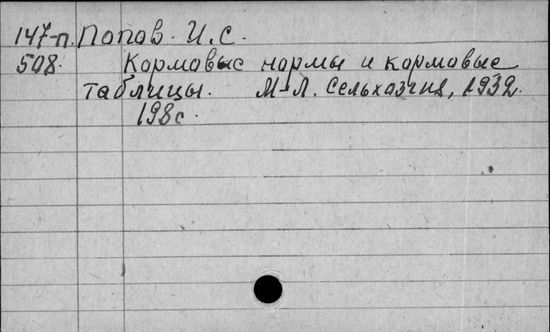 147-п. Попов И.С.
508. Кормовые нормы и кормовые
таблицы. М-Л. Сельхозгиз, 1932.
198с.